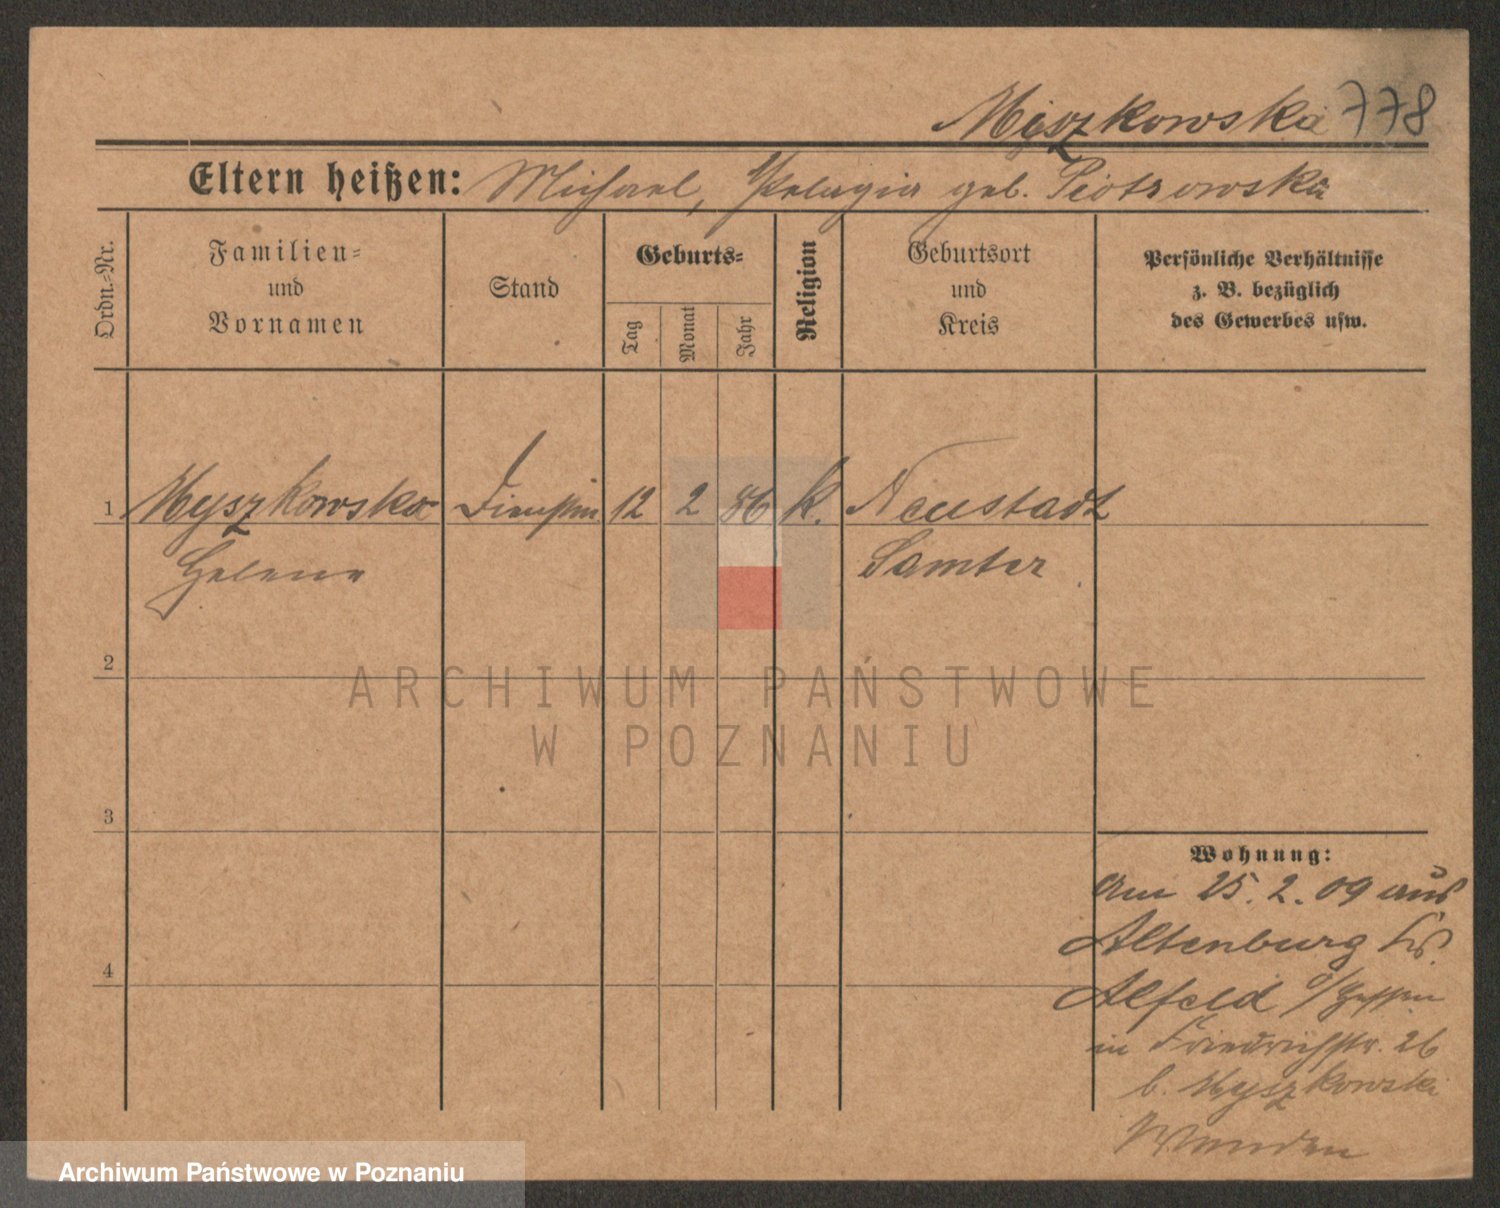 Myszkowska 778
Eltern heißen: Michael, Pelagia geb. Piotrowska
Ordn.-Nr.
Familien=
und
Vornamen
Stand
Geburts=
Tag
Monat
Jahr
Religion
Geburtsort
und
Kreis
Persönliche Verhältnisse
z. B. bezüglich
des Gewerbes usw.
1 Myszkowska 12 2 86 k. Neustadt
Helene Samter
2
ARCHIWUM PAŃSTWOWE
W POZNANIU
3
Wohnung:
Am 25. 2. 09 aus
Altenburg Krs.
Alfeld o/Hessen
in Friedrichstr. 26
b. Myszkowski
4
Archiwum Państwowe w Poznaniu